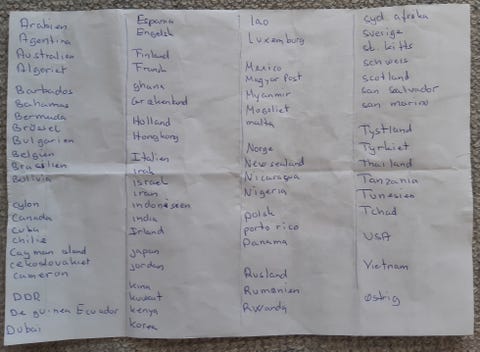 Arabien
Agentina
Australien
Algeriet
Barbados
Bahamas
Bermuda
Brüssel
Bulgarien
Belgien
Brasilien
Bolivia
cylon
Canada
cuba
chilie
Cayman sland
cekoslovakiet
cameron
DDR
De guinea Ecuador
Dubai
Espania
Engelsk
Finland
Fransk
ghana
Grækenland
Holland
Hongkong
Italien
irak
israel
iran
indoneseen
india
Irland
japan
jordan
kina
kuwait
kenya
korea
lao
Luxemburg
Mexico
Magyar Post
Myanmir
Mogoliet
malta
Norge
New sealand
Nicaragua
Nigeria
polsk
porto rico
Panama
Rusland
Rumenien
Rwanda
syd afreka
sverige
st. kitts
schweis
scotland
san salvador
san marino
Tystland
Tyrkiet
Thailand
Tanzania
Tunesien
Tchad
USA
Vietnam
østrig